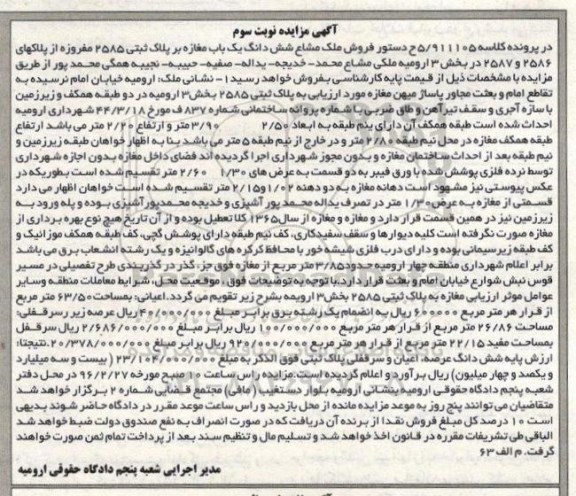 آگهی مزایده نوبت سوم
در پرونده کلاسه ۵/۹۱۱۱۰۵ح دستور فروش ملک مشاع شش دانگ یک باب مغازه بر پلاک ثبتی ۲۵۸۵ مفروزه از پلاکهای
۲۵۸۶ و ۲۵۸۷ در بخش ۳ ارومیه ملکی مشاع محمد- خدیجه- یداله- صفیه- حبیبه- نجیبه همگی محمد پور از طریق
مزایده با مشخصات ذیل از قیمت پایه کارشناسی بفروش خواهد رسید۱- نشانی ملک: ارومیه خیابان امام نرسیده به
تقاطع امام و بعثت مجاور پاساژ میهن مغازه مورد ارزیابی به پلاک ثبتی ۲۵۸۵ بخش۳ ارومیه در دو طبقه همکف و زیرزمین
با سازه آجری و سقف تیرآهن و طاق ضربی با شماره پروانه ساختمانی شماره ۸۳۷ ف مورخ ۴۴/۳/۱۸ شهرداری ارومیه
احداث شده است طبقه همکف آن دارای بنیم طبقه به ابعاد ۲/۵۰ ۳/۹۰ متر و ارتفاع ۲/۲۰ متر می باشد ارتفاع
طبقه همکف مغازه در محل نیم طبقه ۲/۸۰ متر و در خارج از نیم طبقه ۵ متر می باشد بنا به اظهار خواهان طبقه زیرزمین و
نیم طبقه بعد از احداث ساختمان مغازه و بدون مجوز شهرداری اجرا گردیده اند فضای داخل مغازه بدون اجازه شهرداری
توسط نرده فلزی پوشش شده با ورق فیبر به دو قسمت به عرض های ۱/۳۰ ۲/۶۰ متر تقسیم شده است بطوریکه در
عکس پیوستی نیز مشهود است دهانه مغازه به دو دهنه ۱/۰۲و۲/۱۵ متر تقسیم شده است خواهان اظهار می دارد
قسمتی از مغازه به عرض ۱/۳۰ متر در تصرف یداله محمد پور آشپزی و خدیجه محمدپور آشپزی بوده و پله ورود به
زیرزمین نیز در همین قسمت قرار دارد و مغازه و مغازه از سال۱۳۶۵ کلا تعطیل بوده و از آن تاریخ هیچ نوع بهره برداری از
مغازه صورت نگرفته است کلیه دیوارها و سقف سفیدکاری، کف نیم طبقه دارای پوشش گچی، کف طبقه همکف موزائیک و
کف طبقه زیرسیمانی بوده و دارای درب فلزی شیشه خور با محافظ کرکره های گالوانیزه و یک رشته انشعاب برق می باشد
برابر اعلام شهرداری منطقه چهار ارومیه حدود۳/۸۵ متر مربع از مغازه فوق جز، گذر در گذربندی طرح تفصیلی در مسیر
قوس نبش شوارع خیابان امام و بعثت قرار دارد.با توجه به توضیحات فوق، موقعیت محل، شرایط معاملات منطقه وسایر
عوامل موثر ارزیابی مغازه به پلاک ثبتی ۲۵۸۵ بخش۳ ارومیه بشرح زیر تقویم می گردد.اعیانی: بمساحت ۶۳/۵۰ متر مربع
از قرار هر متر مربع ۶۰۰۰۰۰۰ ریال به انضمام یک رشته برق برابر مبلغ ۴۰۰/۰۰۰/۰۰۰ ریال عرصه زیر سرقفلی:
مساحت ۲۶/۸۶ متر مربع از قرار هر متر مربع ۱۰۰/۰۰۰/۰۰۰ ریال برابر مبلغ ۲/۶۸۶/۰۰۰/۰۰۰ ریال سرقفل
بمساحت مفید ۲۲/۱۵ متر مربع از قرار هر متر مربع ۹۲۰/۰۰۰/۰۰۰ ریال برابر مبلغ ۲۰/۳۷۸/۰۰۰/۰۰۰. نتیجتا:
ارزش پایه شش دانگ عرصه، اعیان و سرقفلی پلاک ثبتی فوق الذکر به مبلغ ( بیست و سه میلیارد
و یکصد و چهار میلیون) ریال برآورد و اعلام گردیده است.مزایده راس ساعت ۱۰ صبح مورخه ۹۶/۲/۲۷ در محل دفتر
شعبه پنجم دادگاه حقوقی ارومیه بنشانی ارومیه بلوار دستغیب (مافی) مجتمع قضایی شماره ۲ برگزار خواهد شد
متقاضیان می توانند پنج روز به موعد مزایده مانده از محل بازدید و راس ساعت موعد مقرر در دادگاه حاضر شوند بدیهی
است ۱۰ درصد کل مبلغ فروش نقدا از برنده آن دریافت که در صورت انصراف به نفع صندوق دولت ضبط خواهد شد
الباقی طی تشریفات مقرره در قانون اخذ خواهد شد و تسلیم مال و تنظیم سند بعد از پرداخت تمام ثمن صورت خواهند
گرفت. م الف ۶۳
مدیر اجرایی شعبه پنجم دادگاه حقوقی ارومیه